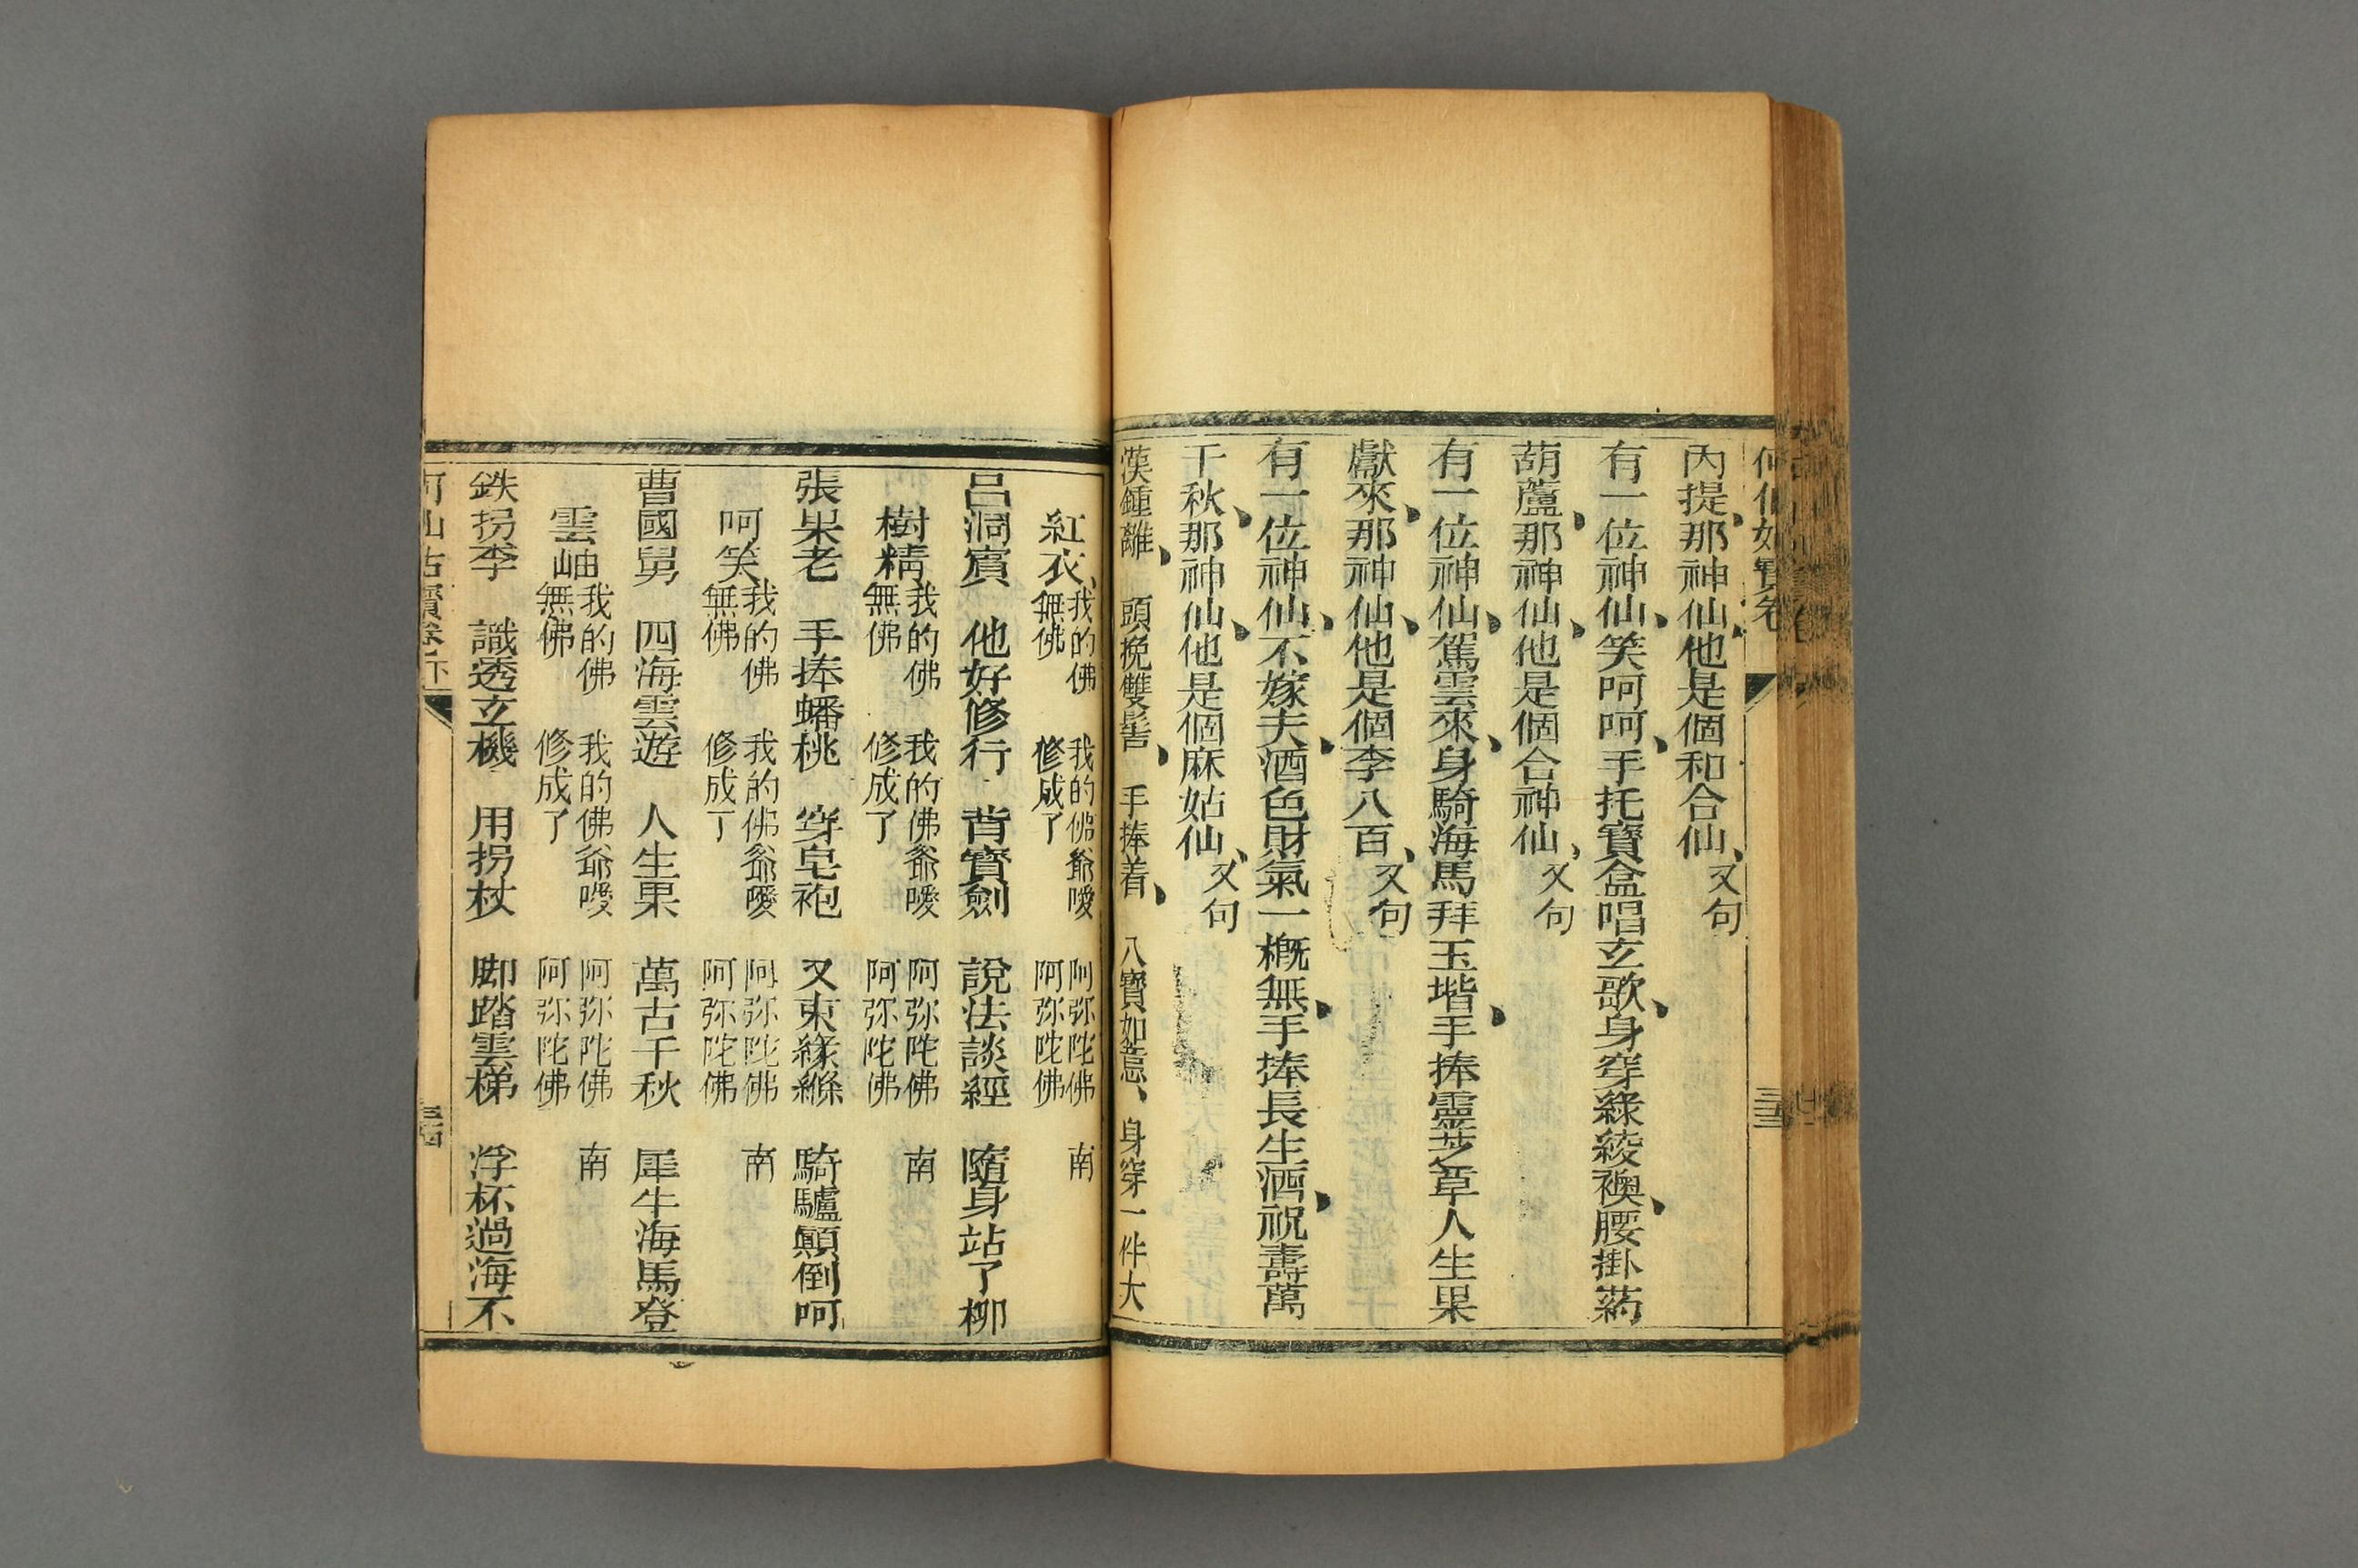 何仙姑寶卷
三三
內提、那神仙、他是個和合仙、又句
有一位神仙、笑呵呵、手托寶盒唱玄歌、身穿綠綾襖、腰掛葯
葫蘆、那神仙、他是個合神仙、又句
有一位神仙、駕雲來、身騎海馬拜玉堦、手捧靈芝草人生果
獻來、那神仙、他是個李八百、又句
有一位神仙、不嫁夫、酒色財氣一概無、手捧長生酒、祝壽萬
千秋、那神仙、他是個麻姑仙、又句
漢鍾離、頭挽雙髻、手捧着、八寶如意、身穿一件大
紅衣、我的佛 我的佛爺噯 阿弥陀佛 南
無佛 修成了 阿弥陀佛
呂洞賓 他好修行 背寶劍 說法談經 隨身站了柳
樹精 我的佛 我的佛爺噯 阿弥陀佛 南
無佛 修成了 阿弥陀佛
張果老 手捧蟠桃 穿皂袍 又束綠縧 騎驢顛倒呵
呵笑 我的佛 我的佛爺噯 阿弥陀佛 南
無佛 修成了 阿弥陀佛
曹國舅 四海雲遊 人生果 萬古千秋 犀牛海馬登
雲岫 我的佛 我的佛爺噯 阿弥陀佛 南
無佛 修成了 阿弥陀佛
鉄拐李 識透玄機 用拐杖 脚踏雲梯 浮杯過海不
何仙姑寶卷下